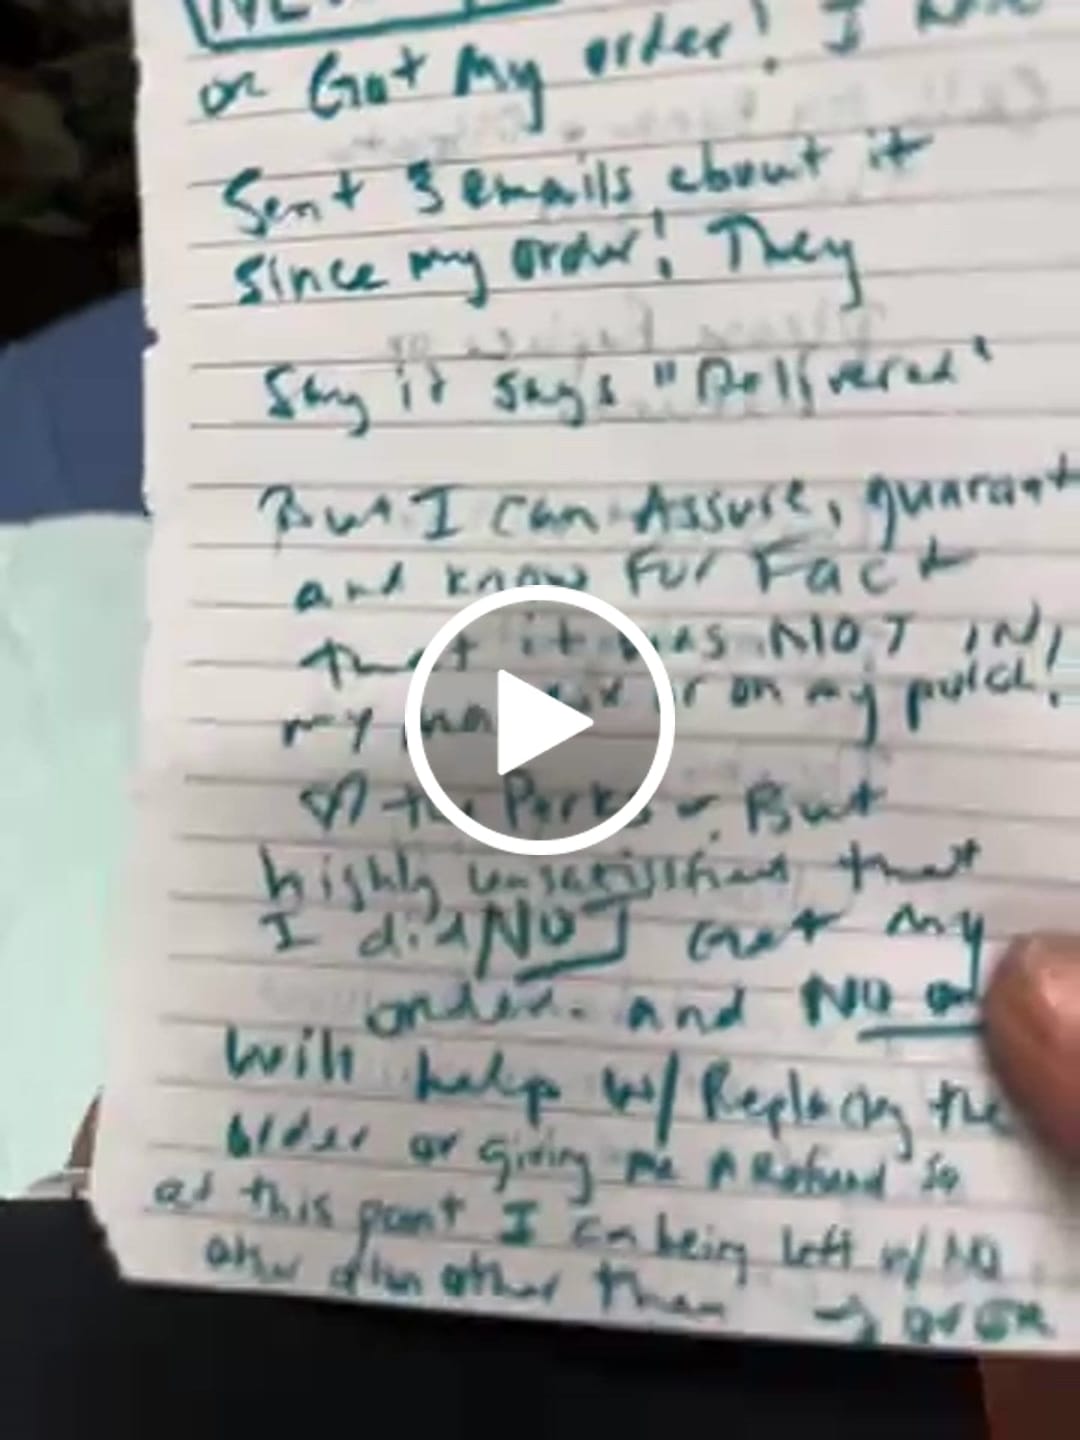 or Got My order! I have
Sent 3 emails about it
since my order! They
Say it says "Delivered"
But I can Assure,
and know For Fact
that it was NOT IN,
my or on my porch!
the Perks But
highly that
I did NOT Get My
order. and NO
Will help w/ Replacing the
order or giving me A Refund So
at this point I am being left w/ NO
other than